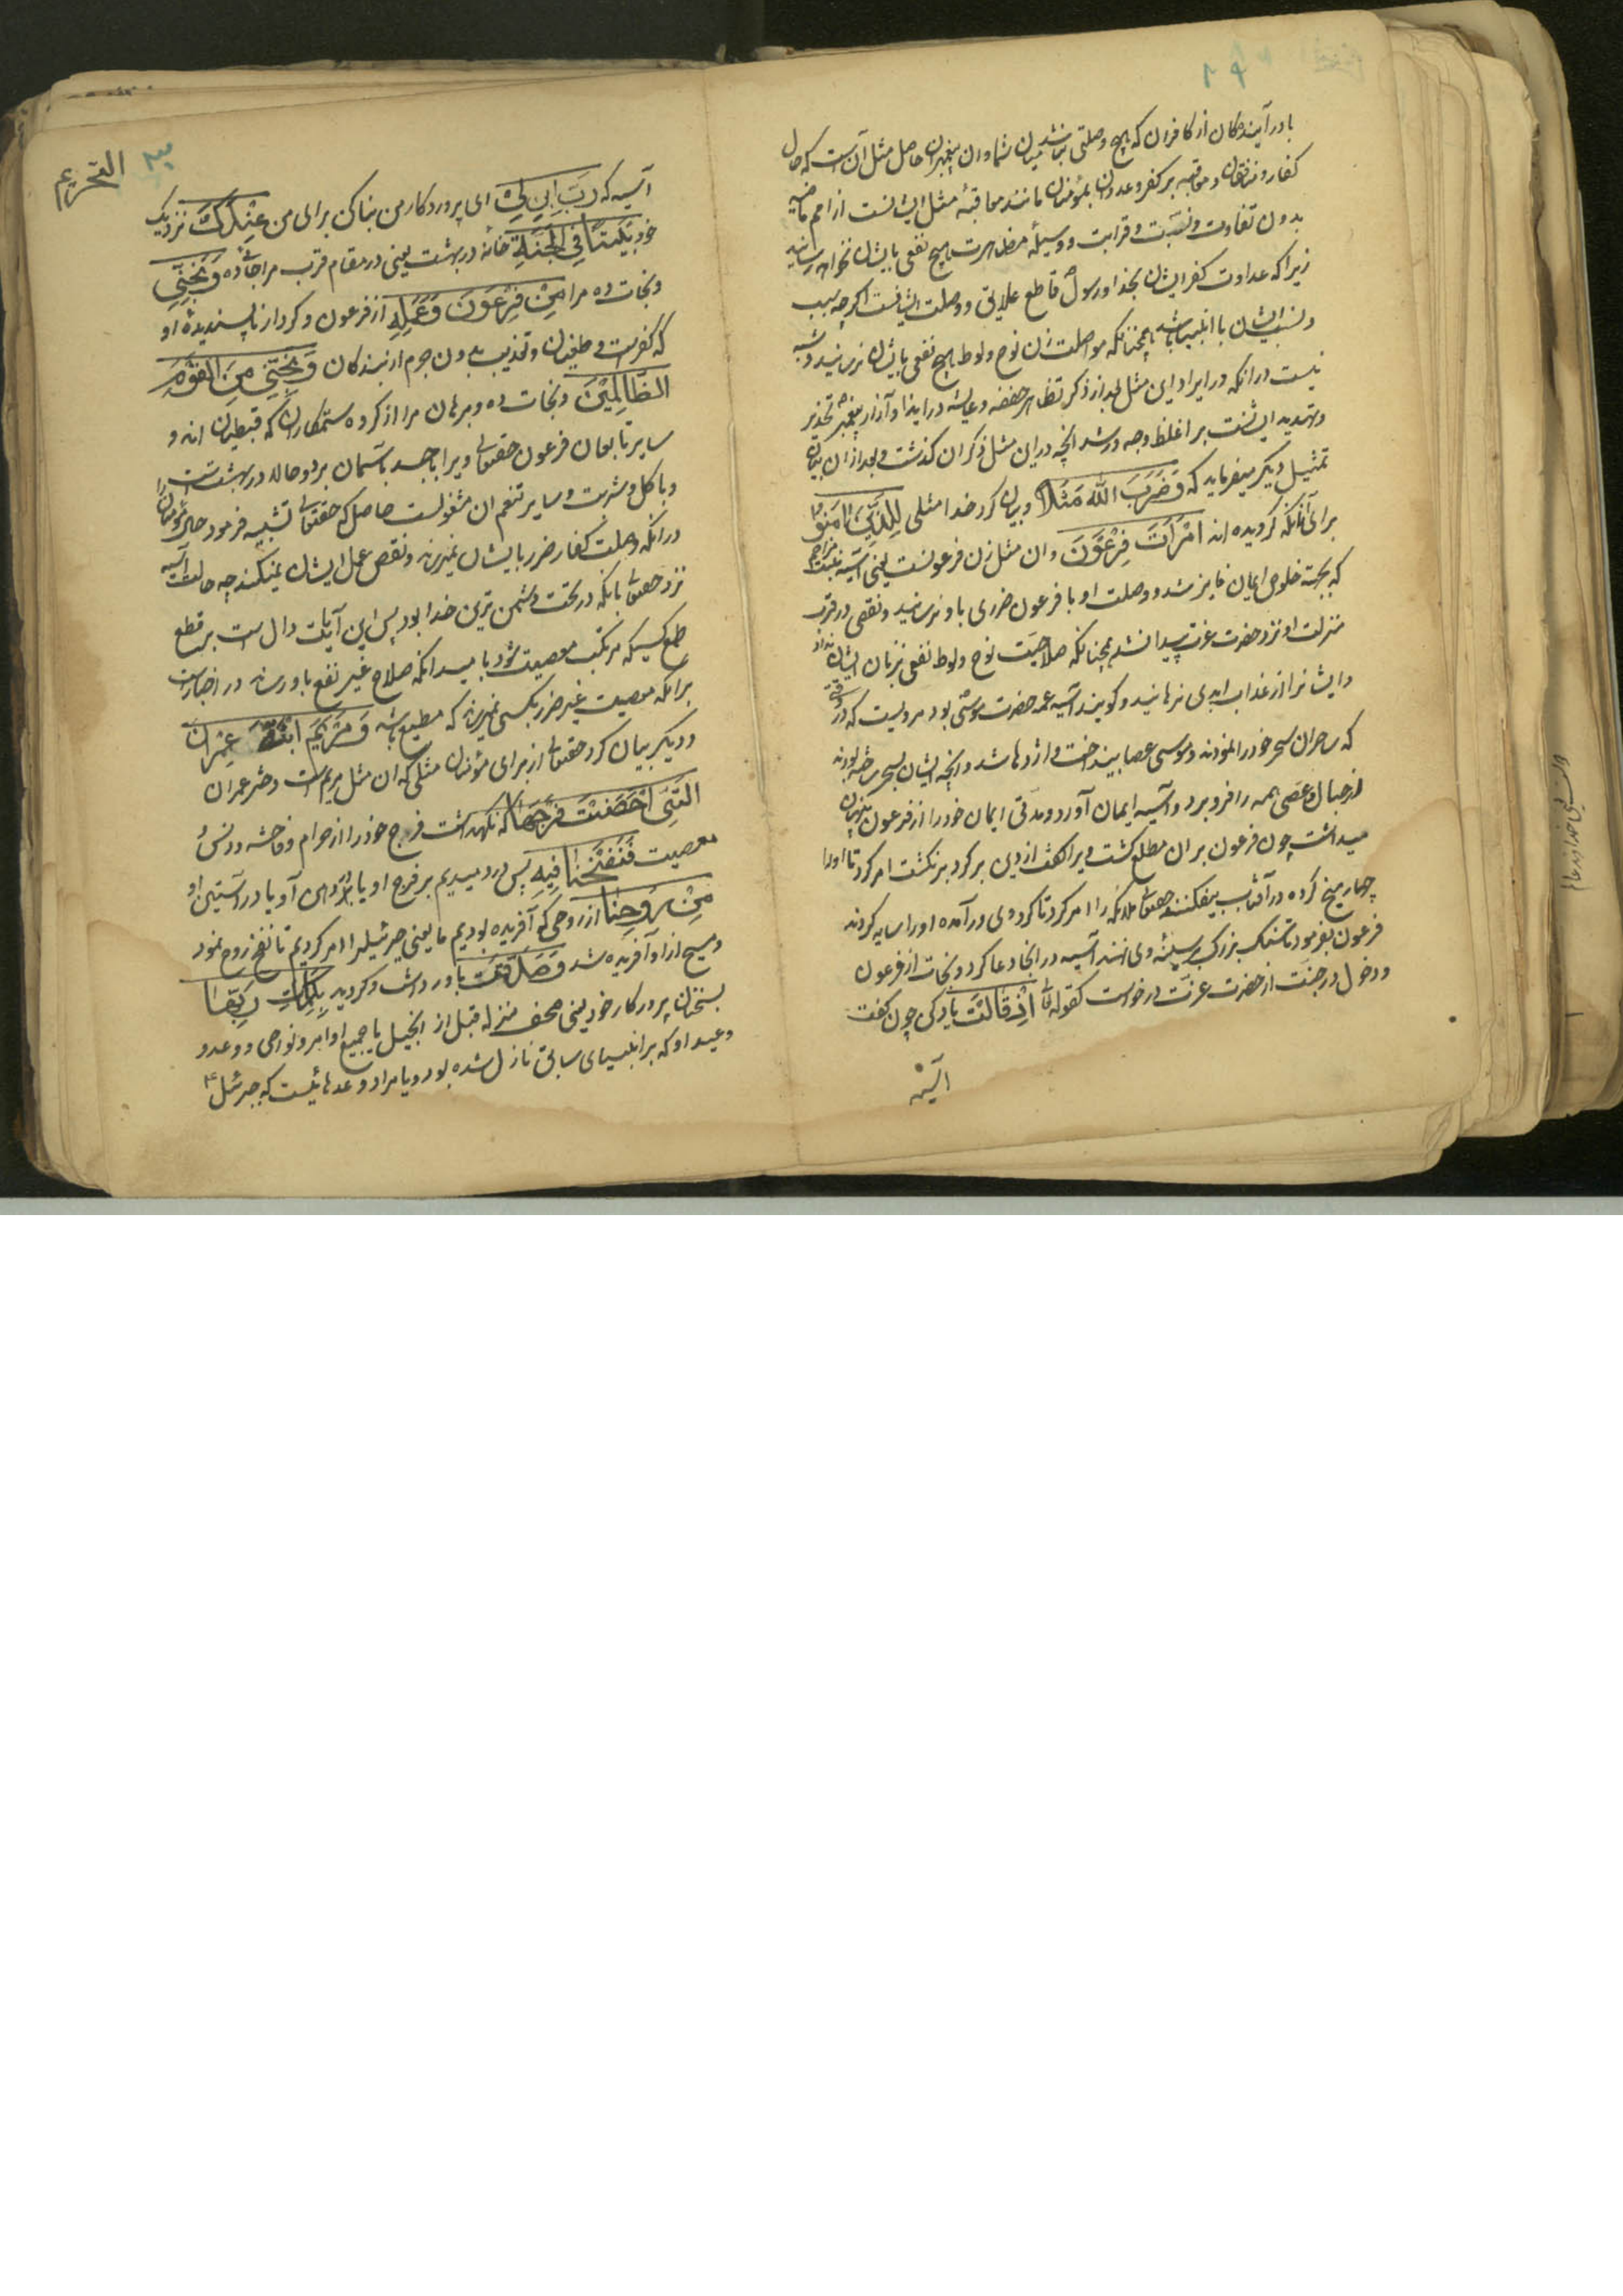 با درآیندگان از کافران که هیچ وصلتی نباشد میان شما و ان پیغمبران حاصل مثل آن است که حال
کفار و منافقان و معاقبه بر کفر و عدوان بمؤمنان مانند معاقبهٔ مثل ایشانست از امم ماضیه
بدون تفاوت و نسبت و قرابت و وسیلهٔ مظاهرت هیچ نفعی بایشان نخواهد رسانید
زیرا که عداوت کفر ایشان بخدا و رسول قاطع علایق و وصلت ایشانست اگر چه سبب
و نسب ایشان با انبیا باشد همچنانکه مواصلت زن نوح و لوط هیچ نفعی بایشان نرسانید و شبه
نیست در انکه در ایراد این مثل بعد از ذکر تظاهر حفصه و عایشه در ایذا و آزار پیغمبر تحذیر
و تهدید ایشانست بر اغلظ وجه و اشد انچه در این مثل ذکر ان گذشت و بعد از ان بیان
تمثیل دیگر میفرماید که وَضَرَبَ اللّٰهُ مَثَلًا و بیان کرد خدا مثلی لِلَّذِينَ اٰمَنُوا
برای آنانکه گرویده اند امْرَأَتَ فِرْعَوْنَ و ان مثل زن فرعونست یعنی آسیه بنت مزاحم
که بجهة خلوص ایمان فایز شد و وصلت او با فرعون ضرری باو نرسانید و نقصی در قرب
منزلت او نزد حضرت عزت پیدا نشد همچنانکه صلاحیت نوح و لوط نفعی بزنان ایشان نداد
و ایشانرا از عذاب ابدی نرهانید و گویند آسیه عمه حضرت موسی بود مرویست که در وقتی
که ساحران سحر خود را نمودند و موسی عصا بینداخت و اژدها شد و انچه ایشان بسحر ساخته بودند
از حبال و عصی همه را فرو برد و آسیه ایمان آورد و مدتی ایمان خود را از فرعون پنهان
میداشت چون فرعون بران مطلع گشت ویرا گفت از دین برگرد برنگشت امر کرد تا او را
چهار میخ کرده در آفتاب بیفکنند حقتعالی ملائکه را امر کرد تا گرد وی درآمده او را سایه کردند
فرعون بفرمود تا سنگ بزرگ بر سینهٔ وی نهند آسیه در انجا دعا کرد و نجات از فرعون
و دخول در جنت از حضرت عزت درخواست کقوله تعالی اِذْ قَالَتْ یاد کن چون گفت
آسیه
التحریم
آسیه که رَبِّ ابْنِ لِي ای پروردگار من بنا کن برای من عِنْدَكَ نزدیک
خود بَيْتًا فِي الْجَنَّةِ خانهٔ در بهشت یعنی در مقام قرب مرا جا ده وَنَجِّنِي
و نجات ده مرا مِنْ فِرْعَوْنَ وَعَمَلِهِ از فرعون و کردار ناپسندیدهٔ او
که کفرست و طغیان و تعذیب بدون جرم از بندگان وَنَجِّنِي مِنَ الْقَوْمِ
الظَّالِمِينَ و نجات ده و برهان مرا از گروه ستمکاران که قبطیان اند و
سایر تابعان فرعون حقتعالی ویرا با جسد بآسمان برد و حالا در بهشت است
و باکل و شرب و سایر تنعم ان مشغولست حاصل که حقتعالی تشبیه فرمود حال مؤمنان را
در انکه وصلت کفار ضرر بایشان نمیرساند و نقص عمل ایشان نمیکند چه حالت آسیه
نزد حقتعالی بانکه در تحت دشمن ترین خدا بود پس این آیات دال است بر قطع
طمع کسیکه مرتکب معصیت شود بامید انکه صلاح غیر نفع باو رساند در اخبارست
برانکه معصیت غیر ضرر بکسی نمیرساند که مطیع باشد وَمَرْيَمَ ابْنَتَ عِمْرَانَ
و دیگر بیان کرد حقتعالی از برای مؤمنان مثلی که ان مثل مریم است دختر عمران
الَّتِي أَحْصَنَتْ فَرْجَهَا که نگهداشت فرج خود را از حرام و فاحشه و دنس
معصیت فَنَفَخْنَا فِيهِ پس در دمیدیم بر فرج او یا در دهان او یا در آستین او
مِنْ رُوحِنَا از روحی که آفریده بودیم ما یعنی جبرئیلرا امر کردیم تا نفخ روح نمود
و مسیح از او آفریده شد وَصَدَّقَتْ باور داشت و گروید بِكَلِمَاتِ رَبِّهَا
بسخنان پروردگار خود یعنی صحف منزله قبل از انجیل یا جمیع اوامر و نواهی و وعد و
وعید او که بر انبیای سابق نازل شده بود و یا مراد وعدهائیست که جبرئیل ع